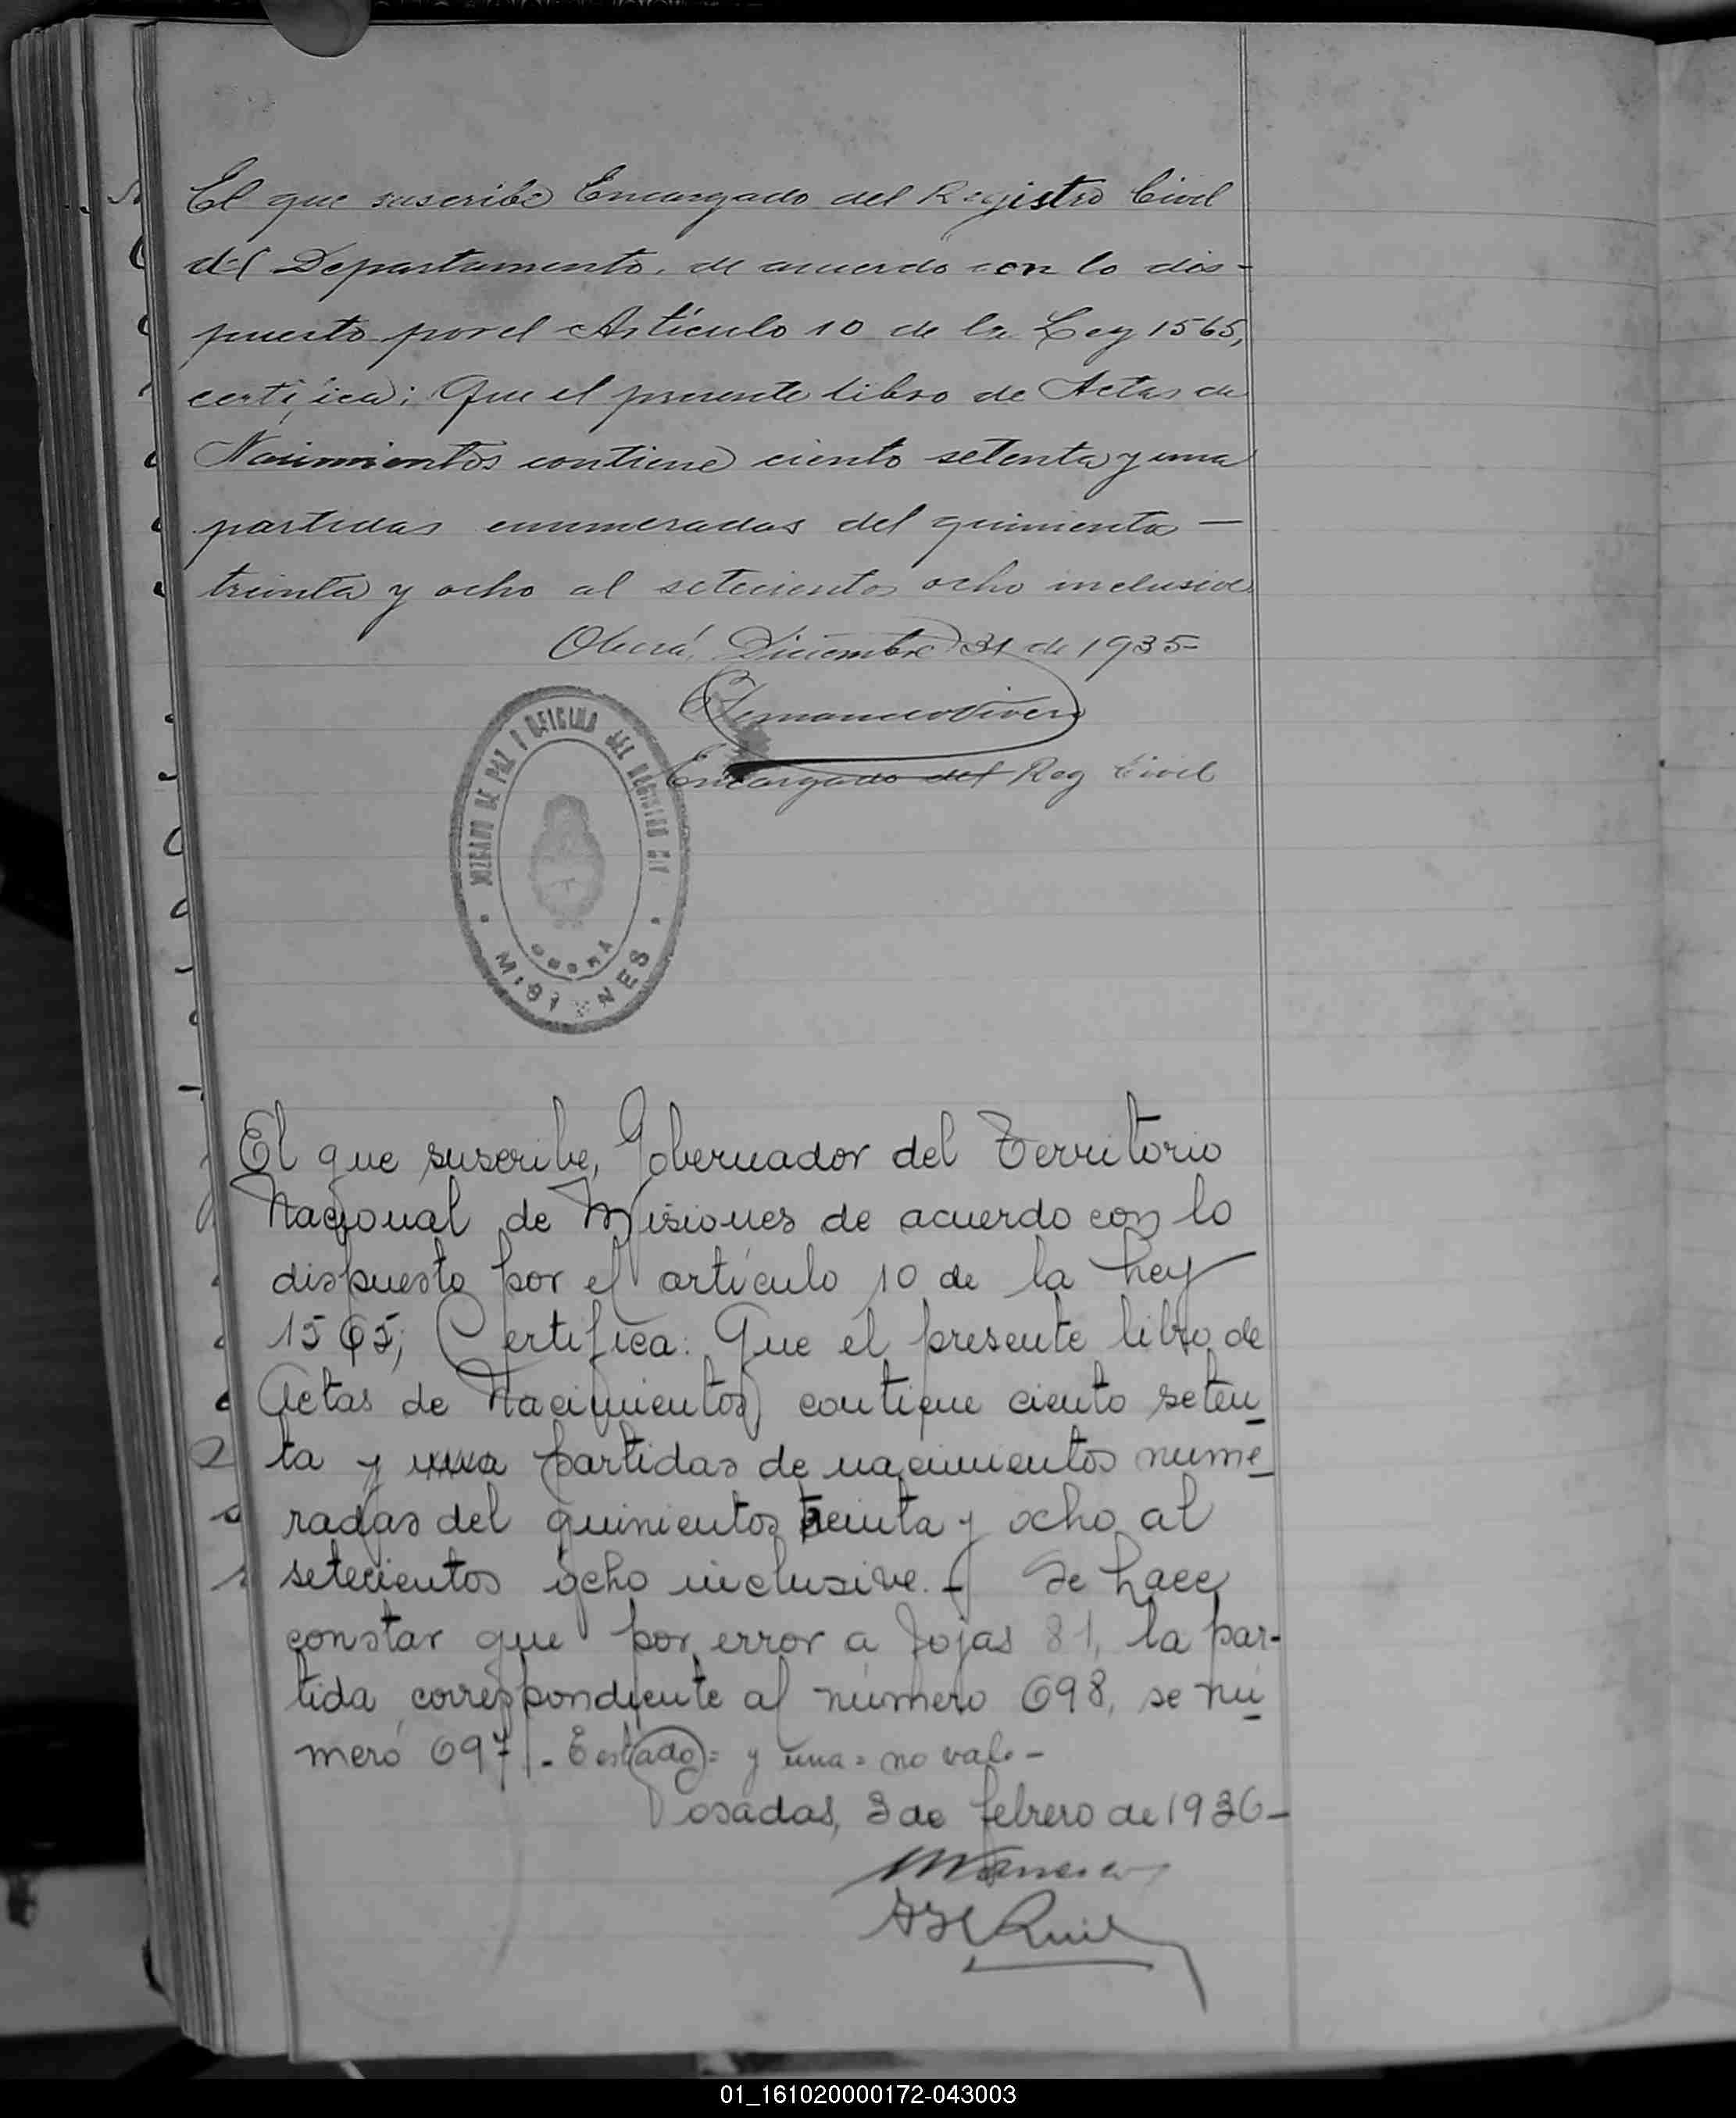 El que suscribe Encargado del Registro Civil
del Departamento, de acuerdo con lo dis-
puesto por el Artículo 10 de la Ley 1565,
certifica: Que el presente libro de Actas de
Nacimientos contiene ciento setenta y una
partidas enumeradas del quinientos —
treinta y ocho al setecientos ocho inclusive.
Oberá, Diciembre 31 de 1935-
Encargado del Reg Civil
JUZGADO DE PAZ Y OFICINA DEL REGISTRO CIV
OBERA
MISIONES
El que suscribe, Gobernador del Territorio
Nacional de Misiones de acuerdo con lo
dispuesto por el artículo 10 de la Ley
1565; Certifica: Que el presente libro de
Actas de Nacimientos contiene ciento seten_
ta y una partidas de nacimientos nume_
radas del quinientos treinta y ocho al
setecientos ocho inclusive.- Se hace
constar que por error a fojas 81, la par-
tida correspondiente al número 698, se nu_
meró 697.- Testado = y una = no vale -
Posadas, 3 de febrero de 1936-
01_161020000172-043003